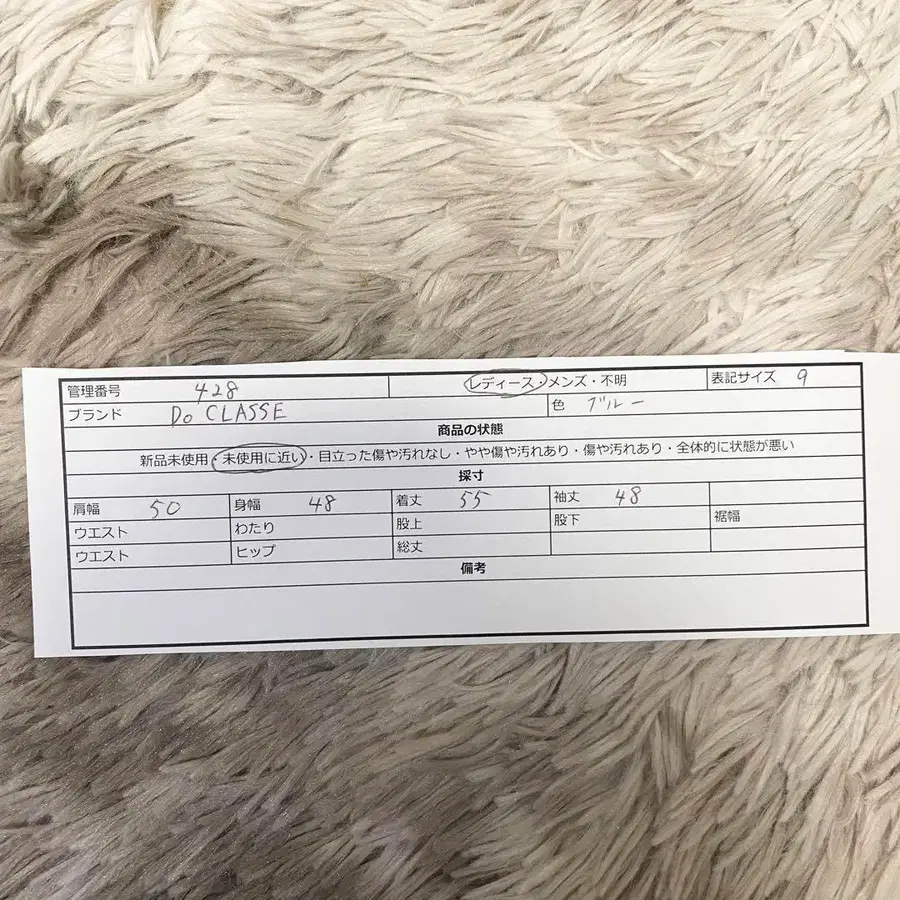 管理番号 428 レディース・メンズ・不明 表記サイズ 9
ブランド Do CLASSE 色 ブルー
商品の状態
新品未使用・未使用に近い・目立った傷や汚れなし・やや傷や汚れあり・傷や汚れあり・全体的に状態が悪い
採寸
肩幅 50 身幅 48 着丈 55 袖丈 48
ウエスト わたり 股上 股下 裾幅
ウエスト ヒップ 総丈
備考